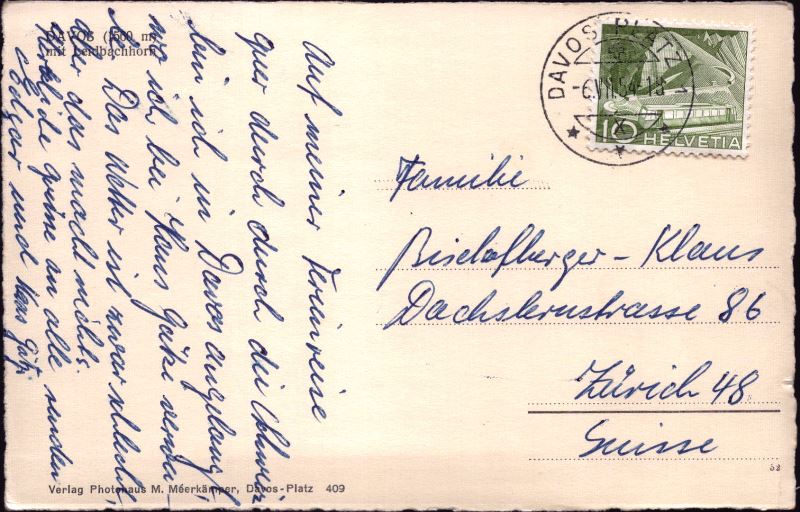 DAVOS (1560 m)
mit Leidbachhorn
Auf meiner Ferienreise
quer durch durch die Schweiz
bin ich in Davos angelangt
wo ich bei Hans
Das Wetter ist zwar schlecht,
aber das macht nichts.
Herzliche Grüsse an alle senden
Edgar und Hans Götz
DAVOS PLATZ 1
-6.VII.54-18
10 HELVETIA
Familie
Bischofberger-Klaus
Dachslernstrasse 86
Zürich 48
Suisse
Verlag Photohaus M. Meerkämper, Davos-Platz 409